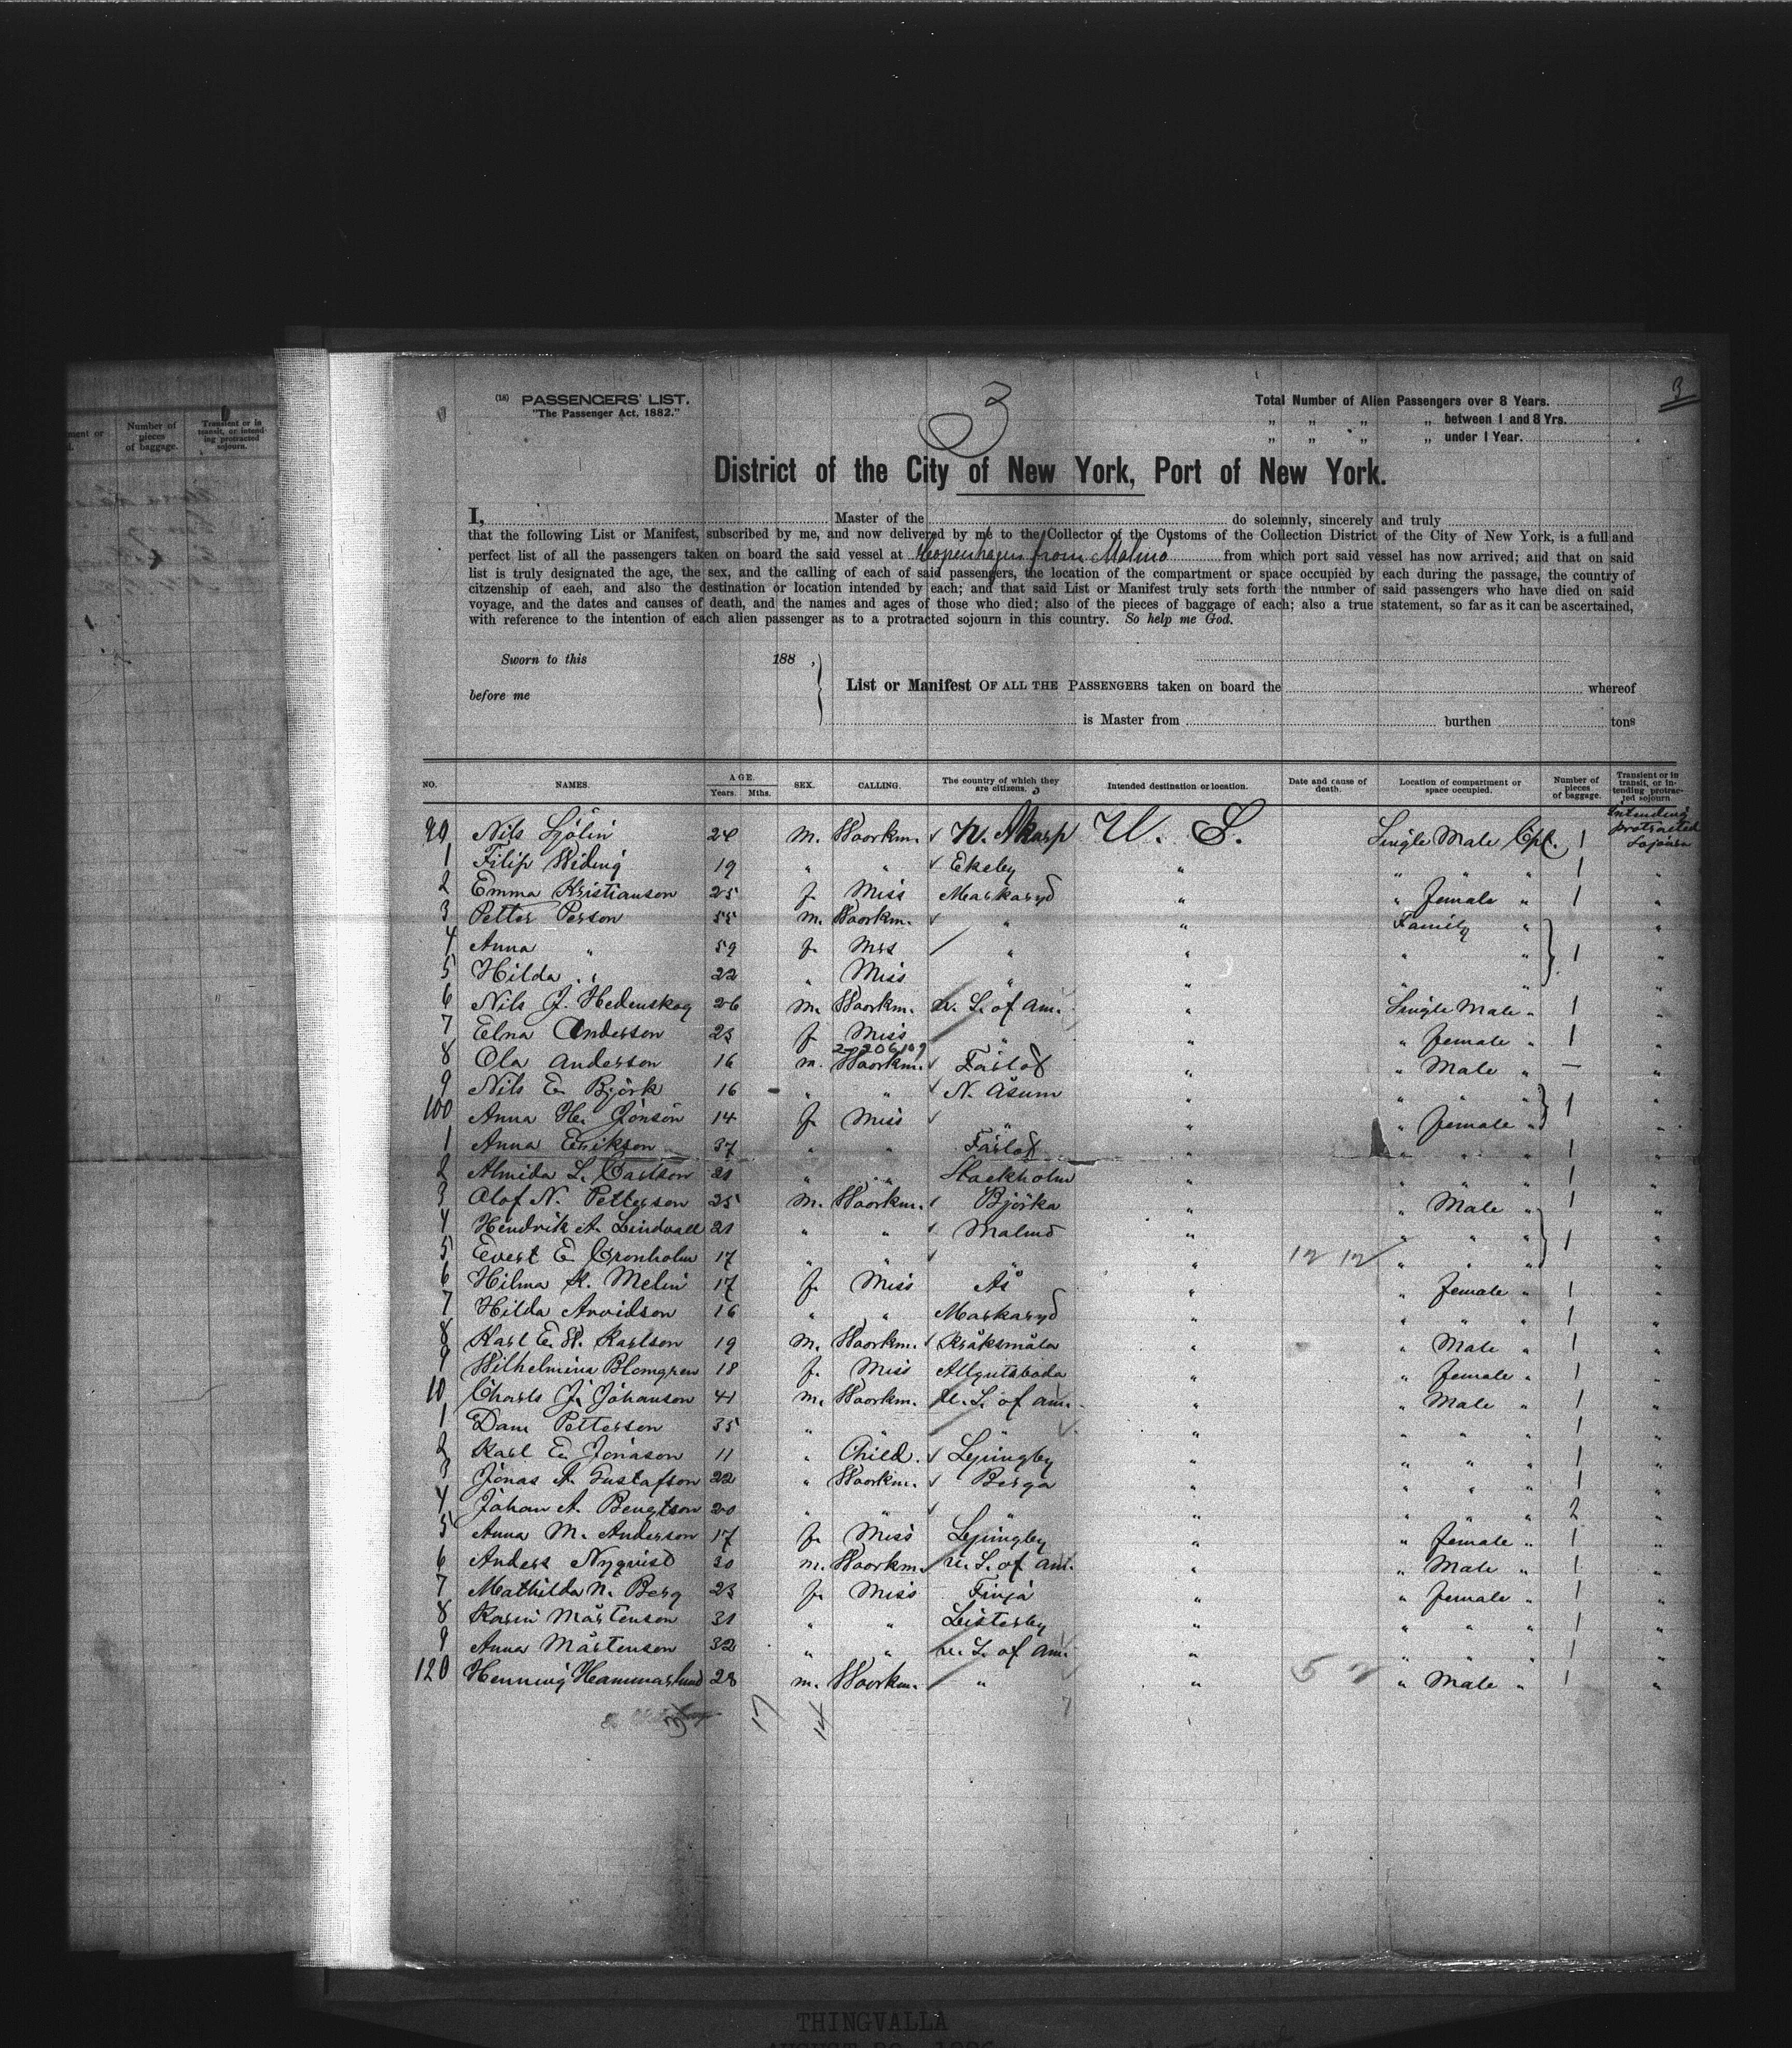 (18) PASSENGERS' LIST.
"The Passenger Act, 1882."
3
3
Total Number of Alien Passengers over 8 Years.
„ „ „ „ between 1 and 8 Yrs.
„ „ „ „ under 1 Year.
District of the City of New York, Port of New York.
I, Master of the do solemnly, sincerely and truly
that the following List or Manifest, subscribed by me, and now delivered by me to the Collector of the Customs of the Collection District of the City of New York, is a full and
perfect list of all the passengers taken on board the said vessel at Copenhagen from Malmö from which port said vessel has now arrived; and that on said
list is truly designated the age, the sex, and the calling of each of said passengers, the location of the compartment or space occupied by each during the passage, the country of
citzenship of each, and also the destination or location intended by each; and that said List or Manifest truly sets forth the number of said passengers who have died on said
voyage, and the dates and causes of death, and the names and ages of those who died; also of the pieces of baggage of each; also a true statement, so far as it can be ascertained,
with reference to the intention of each alien passenger as to a protracted sojourn in this country. So help me God.
Sworn to this 188 ,
before me
List or Manifest OF ALL THE PASSENGERS taken on board the whereof
is Master from burthen tons
NO. NAMES. AGE. Years. Mths. SEX. CALLING. The country of which they are citizens. Intended destination or location. Date and cause of death. Location of compartment or space occupied. Number of pieces of baggage. Transient or in transit, or intending protracted sojourn
90 Nils Sjölin 24 m. Woorkm. U. S. Single Male Cpt. 1 Intending protracted Sojourn
1 Filip Widing 19 " " Ekeby " " " " 1 "
2 Emma Kristianson 25 f. Miss Markaryd " " female " 1 "
3 Petter Person 55 m. Woorkm. " " Family " "
4 Anna " 59 f. Mrs " " " " 1 "
5 Hilda " 22 " Miss " " " " "
6 Nils J. Hedenskog 26 m. Woorkm. u. S. of am. " Single Male " 1 "
7 Elna Anderson 23 f. Miss " " " female " 1 "
2-206109
8 Ola Anderson 16 m. Woorkm. Färlöf " " Male " — "
9 Nils E. Björk 16 " " N. Åsum " " " " 1 "
100 Anna H. Jönson 14 f. Miss " " " female " "
1 Anna Erikson 37 " " Färlöf " " " " 1 "
2 Almida L. Carlson 21 " " Stockholm " " " " 1 "
3 Olof N. Petterson 25 m. Woorkm. Björka " " Male " 1 "
4 Hendrik A. Lindvall 21 " " Malmö " " " " 1 "
5 Evert E. Cronholm 17 " " " " 12 12 " " " "
6 Hilma K. Melin 17 f. Miss Ås " " female " 1 "
7 Hilda Arvidson 16 " " Markaryd " " " " 1 "
8 Karl E. W. Karlson 19 m. Woorkm. Kråksmåla " " Male " 1 "
9 Wilhelmina Blomgren 18 f. Miss Algutsboda " " female " 1 "
10 Charls J. Johanson 41 m. Woorkm. u. S. of am. " " Male " 1 "
1 Dam Petterson 35 " " " " " " " 1 "
2 Karl E. Jonason 11 " Child. Ljungby " " " " 1 "
3 Jonas A. Gustafson 22 " Woorkm. Berga " " " " 1 "
4 Johan A. Bengtson 20 " " " " " " " 2 "
5 Anna M. Anderson 17 f. Miss Ljungby " " female " 1 "
6 Anders Nyqvist 30 m. Woorkm. u. S. of am. " " Male " 1 "
7 Mathilda N. Berg 23 f. Miss Finja " " female " 1 "
8 Karin Mårtenson 31 " " Listerby " " " " 1 "
9 Anna Mårtenson 32 " " u. S. of am. " " " " 1 "
120 Henning Hammarlund 28 m. Woorkm. " " 5 2 " Male " 1 "
17 14
Number of pieces of baggage.
Transient or in transit, or intending protracted sojourn.
THINGVALLA